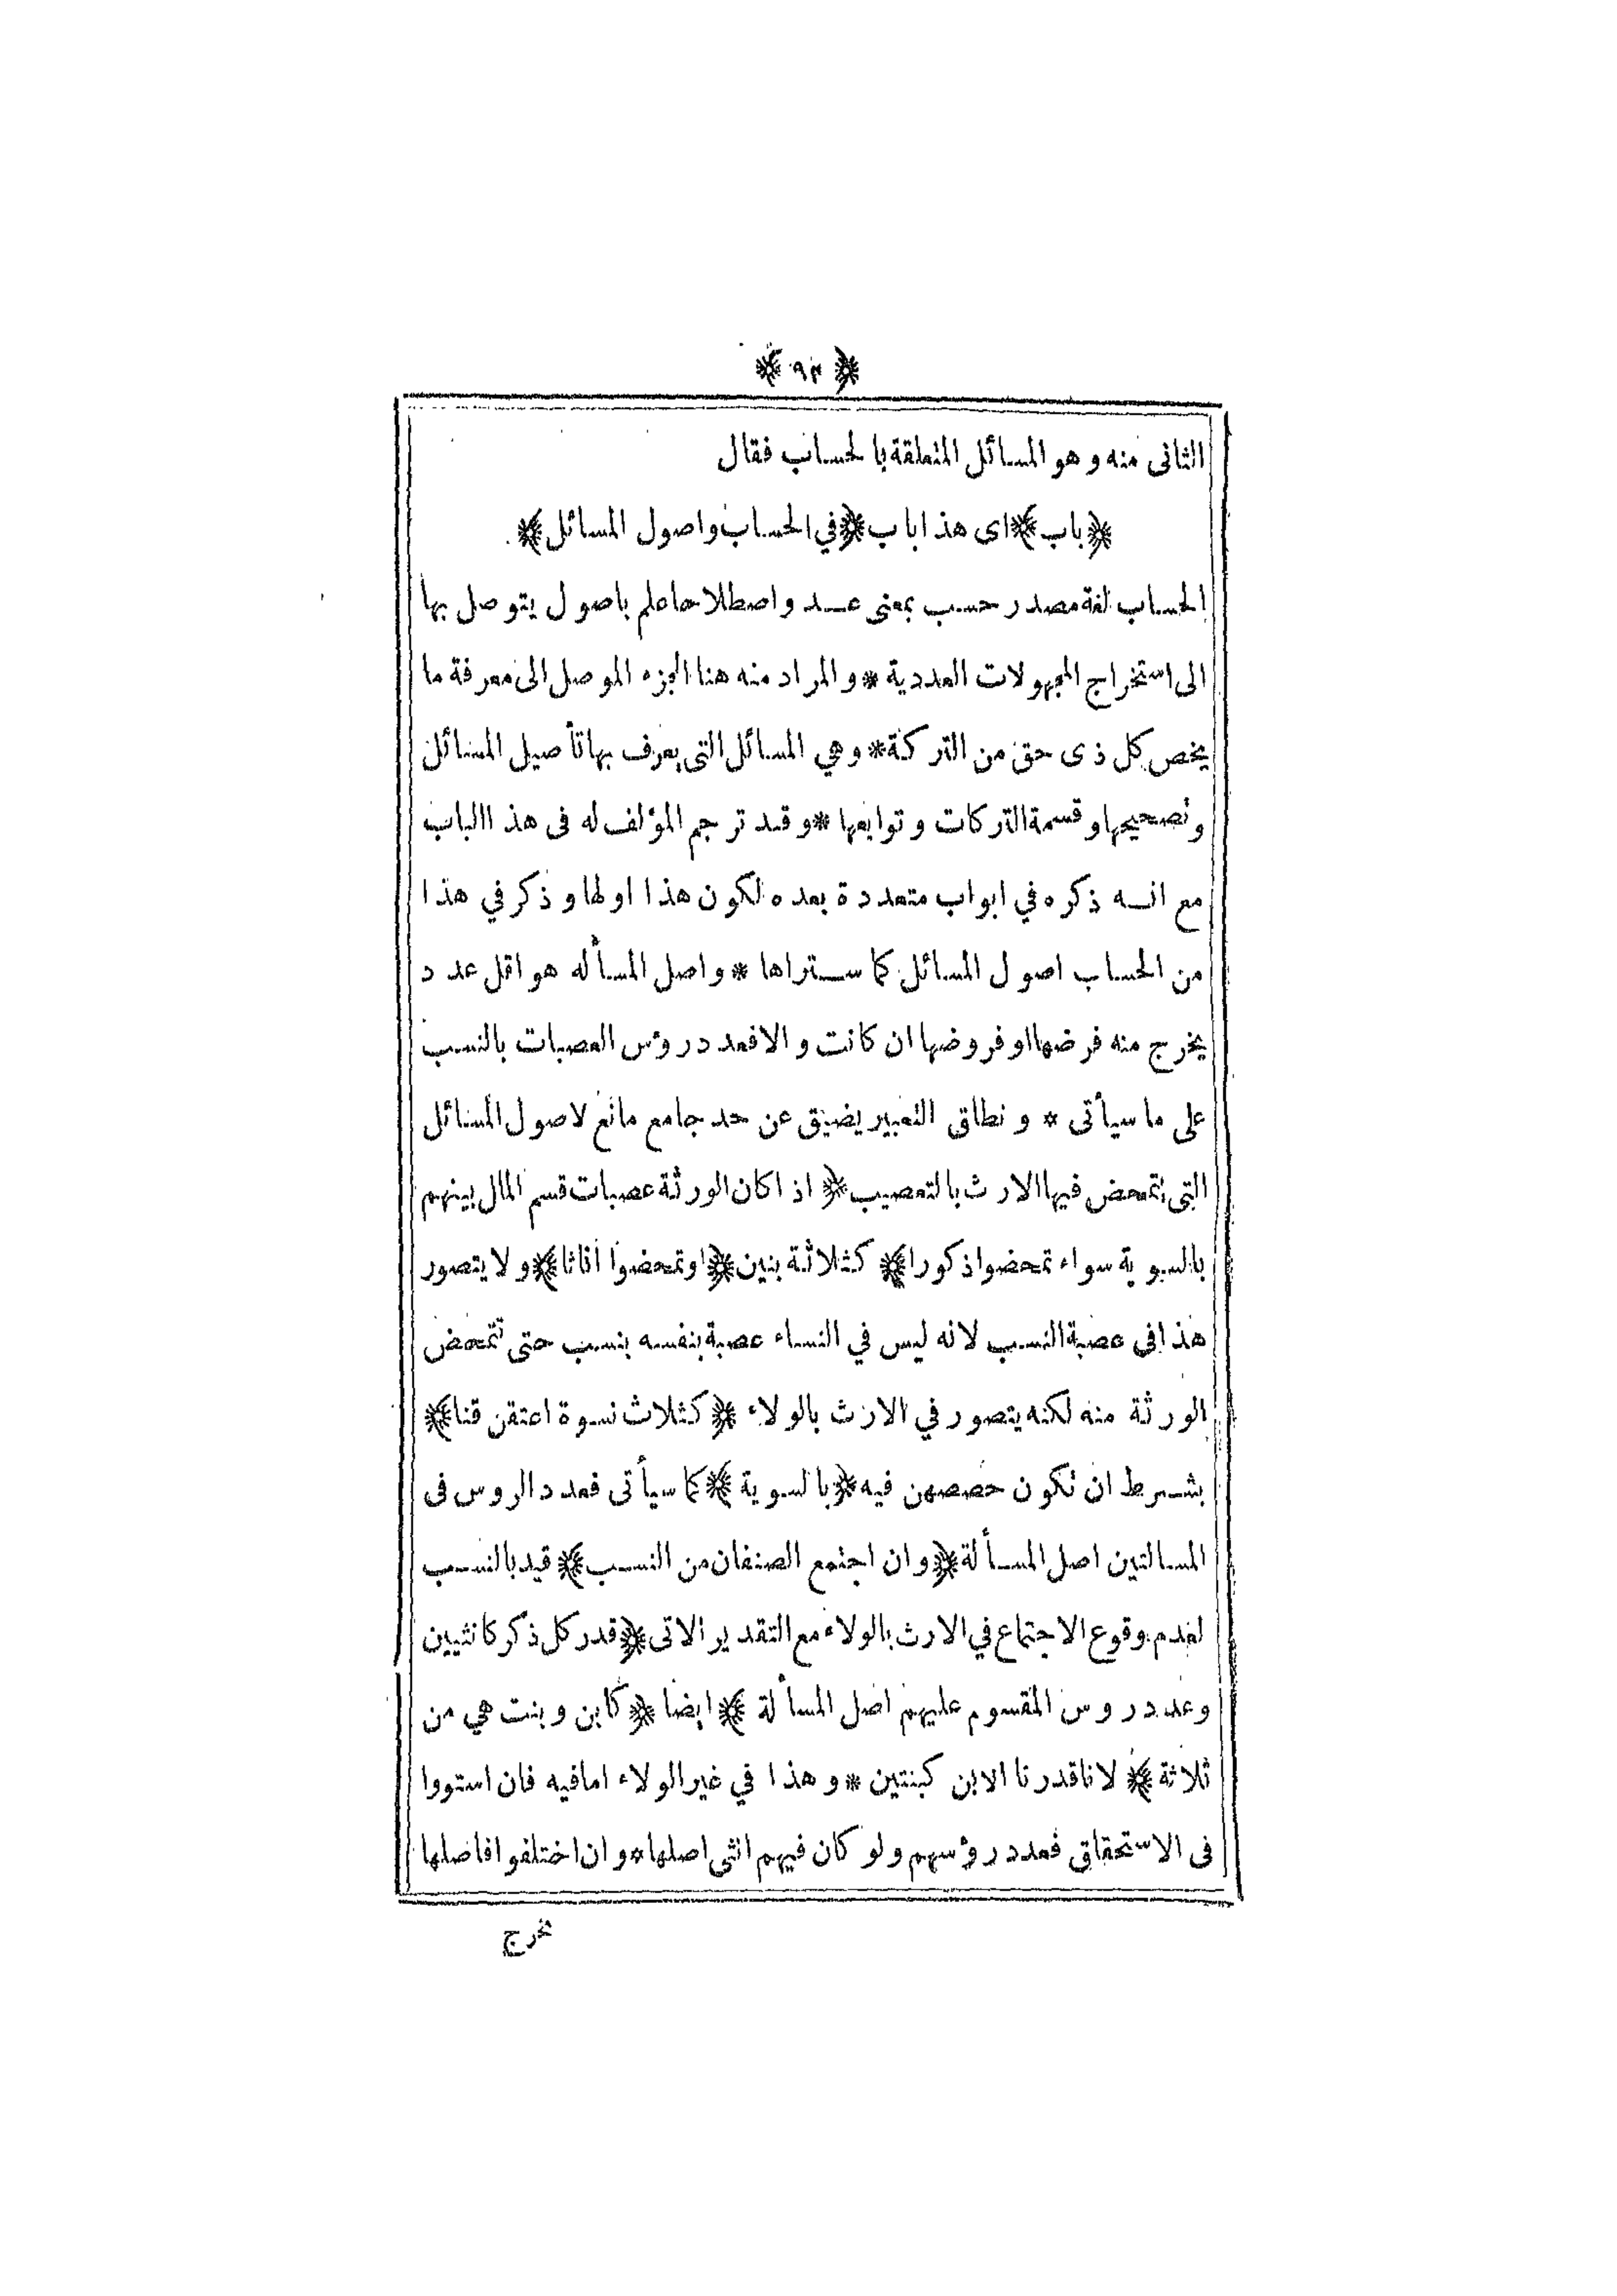 ﴿ ٩٢ ﴾
الثانى منه وهو المسائل المتعلقة بالحساب فقال
﴿باب﴾ اى هذا باب ﴿في الحساب واصول المسائل﴾
الحساب لغة مصدر حسب بمعنى عد واصطلاحا علم باصول يتوصل بها
الى استخراج المجهولات العددية * والمراد منه هنا الجزء الموصل الى معرفة ما
يخص كل ذى حق من التركة * وهي المسائل التى يعرف بها تأصيل المسائل
وتصحيحها وقسمة التركات وتوابعها * وقد ترجم المؤلف له فى هذا الباب
مع انه ذكره في ابواب متعددة بعده لكون هذا اولها وذكر في هذا
من الحساب اصول المسائل كما ستراها * واصل المسأله هو اقل عدد
يخرج منه فرضها او فروضها ان كانت والا فعدد رؤس العصبات بالنسب
على ما سيأتى * ونطاق التعبير يضيق عن حد جامع مانع لاصول المسائل
التى يتمحض فيها الارث بالتعصيب ﴿ اذا كان الورثة عصبات قسم المال بينهم
بالسوية سواء تمحضوا ذكورا ﴾ كثلاثة بنين ﴿او تمحضوا اناثا﴾ ولا يتصور
هذا فى عصبة النسب لانه ليس في النساء عصبة بنفسه بنسب حتى تتمحض
الورثة منه لكنه يتصور في الارث بالولاء ﴿ كثلاث نسوة اعتقن قنا﴾
بشرط ان تكون حصصهن فيه ﴿بالسوية﴾ كما سيأتى فعدد الروس فى
المسالتين اصل المسألة ﴿وان اجتمع الصنفان من النسب﴾ قيد بالنسب
لعدم وقوع الاجتماع في الارث بالولاء مع التقدير الاتى ﴿قدر كل ذكر كانثيين
وعدد روس المقسوم عليهم اصل المسألة ﴾ ايضا ﴿ كابن وبنت هي من
ثلاثة ﴾ لانا قدرنا الابن كبنتين * وهذا في غير الولاء اما فيه فان استووا
فى الاستحقاق فعدد رؤسهم ولو كان فيهم انثى اصلها * وان اختلفوا فاصلها
مخرج